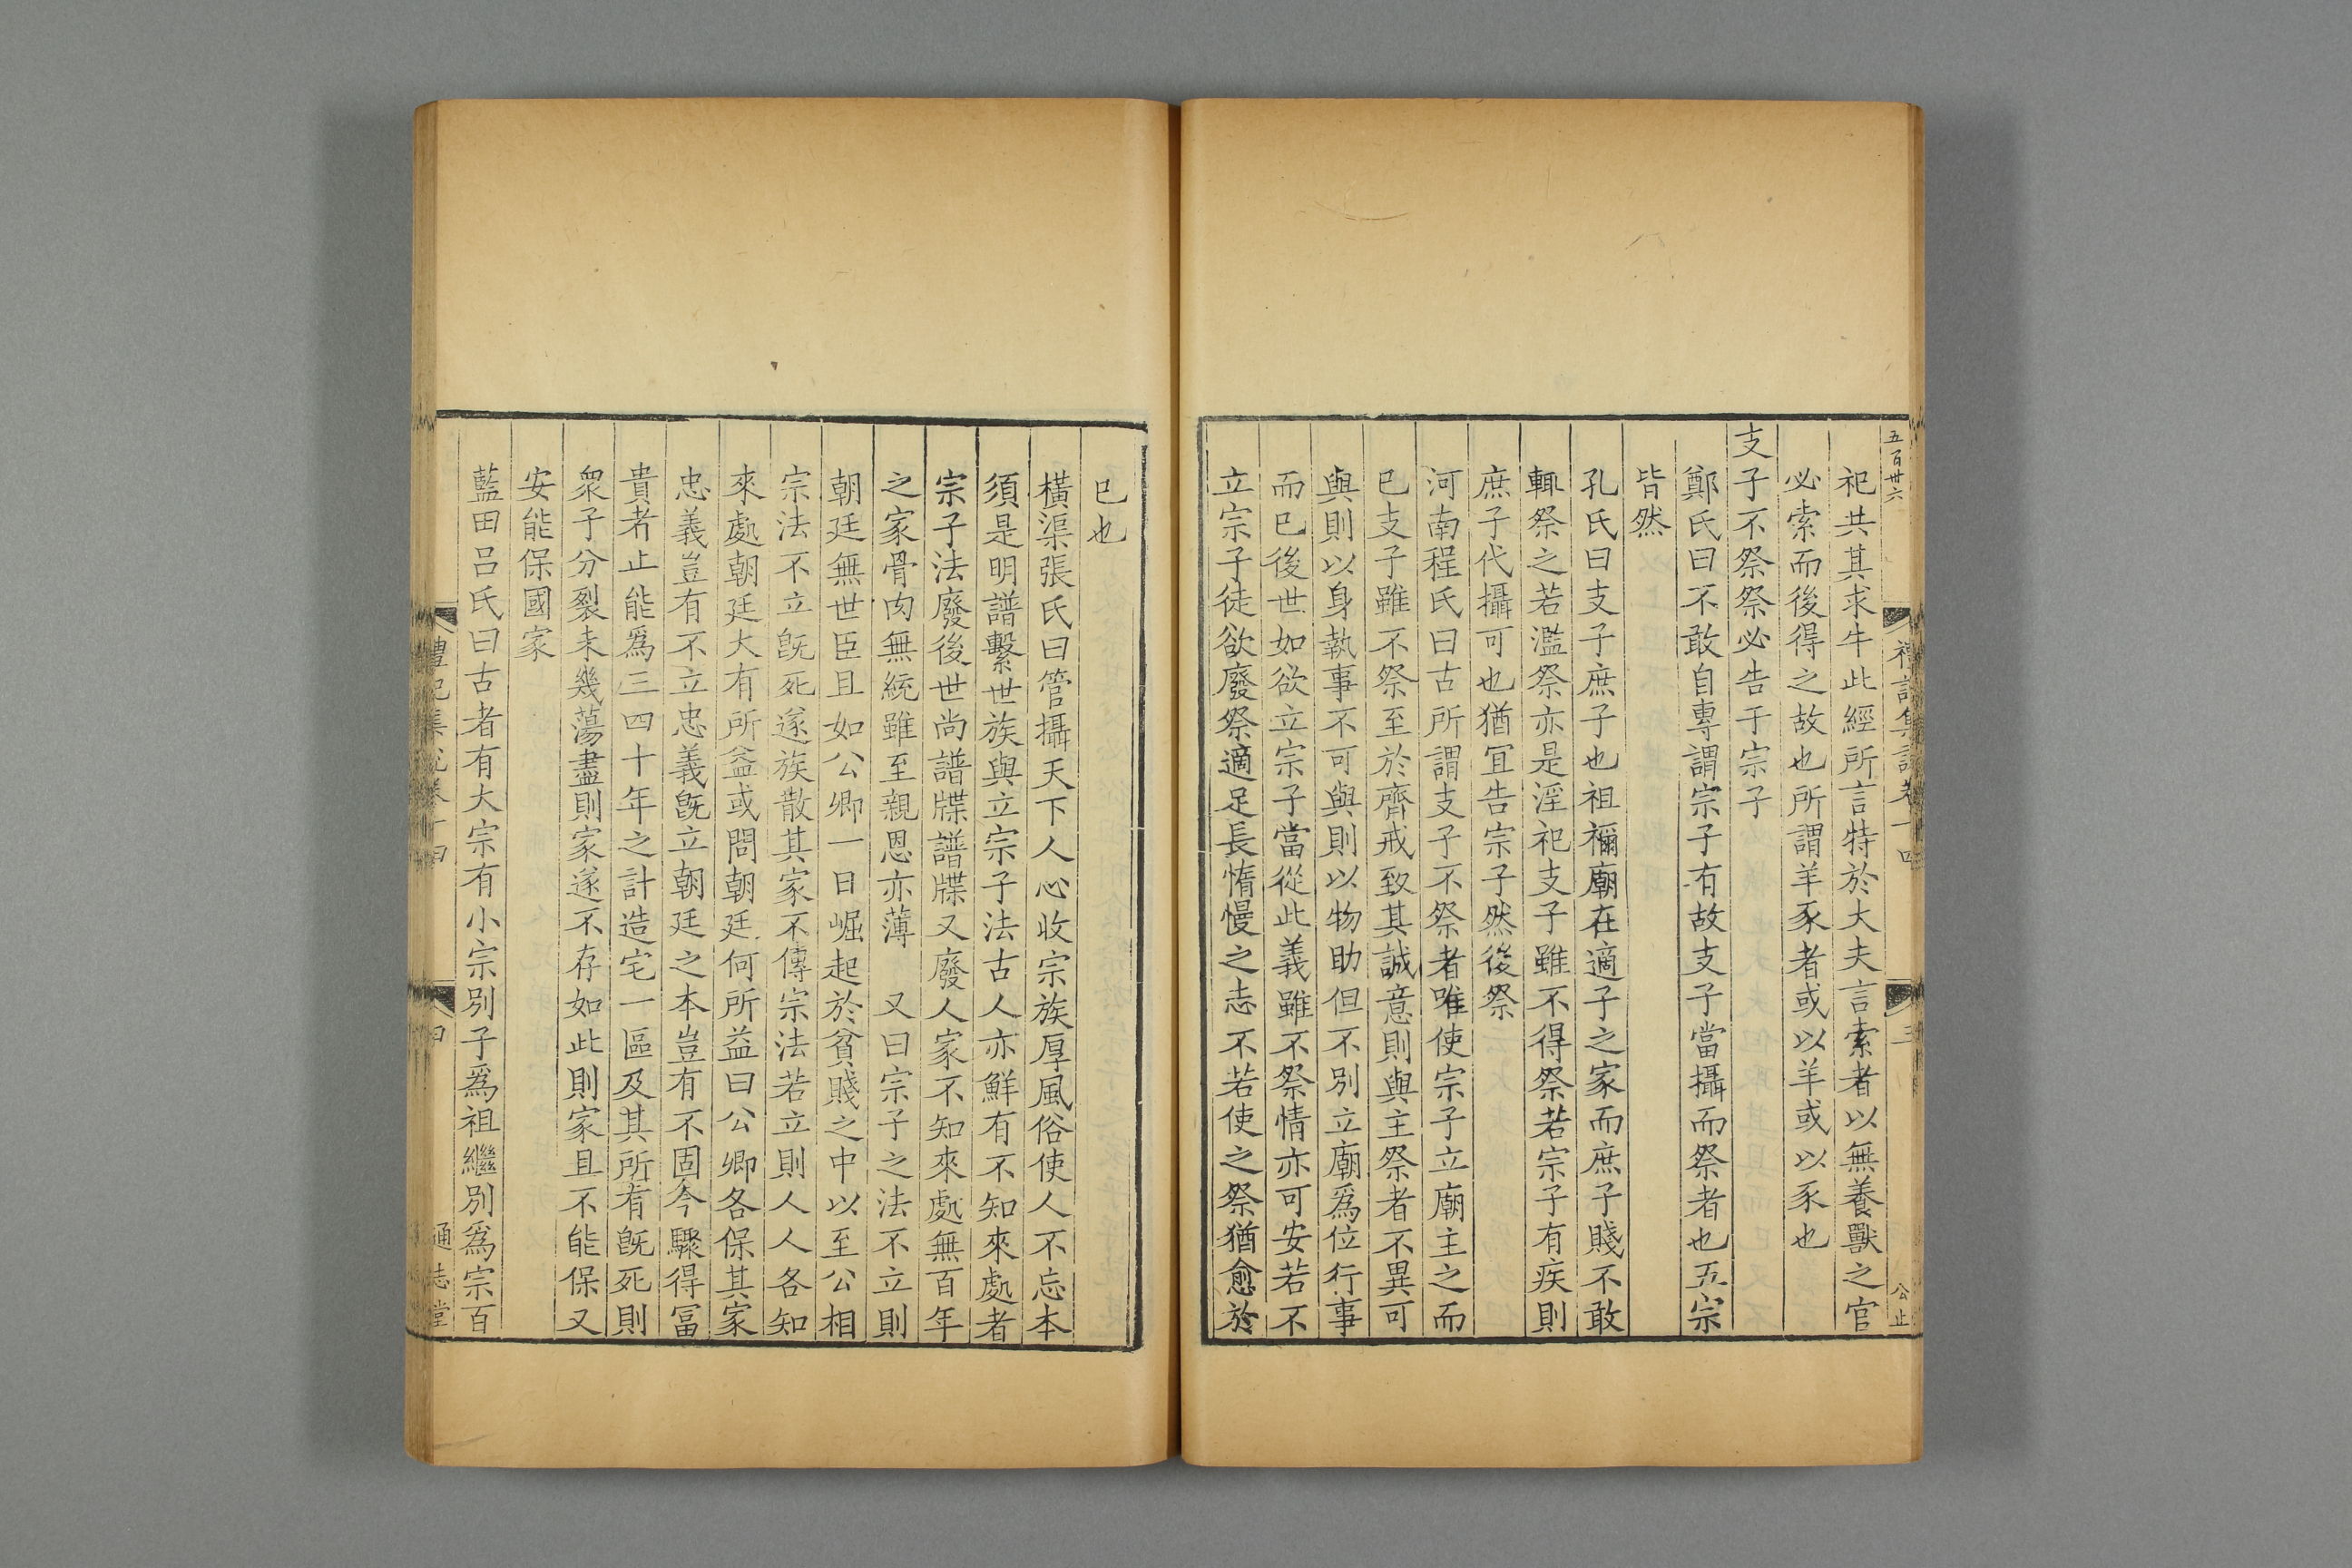 五百卅六
禮記集說卷十四
三
公止
祀共其求牛此經所言特於大夫言索者以無養獸之官
必索而後得之故也所謂羊豕者或以羊或以豕也
支子不祭祭必告于宗子
鄭氏曰不敢自專謂宗子有故支子當攝而祭者也五宗
皆然
孔氏曰支子庶子也祖禰廟在適子之家而庶子賤不敢
輒祭之若濫祭亦是淫祀支子雖不得祭若宗子有疾則
庶子代攝可也猶宜告宗子然後祭
河南程氏曰古所謂支子不祭者唯使宗子立廟主之而
已支子雖不祭至於齊戒致其誠意則與主祭者不異可
與則以身執事不可與則以物助但不別立廟爲位行事
而已後世如欲立宗子當從此義雖不祭情亦可安若不
立宗子徒欲廢祭適足長惰慢之志不若使之祭猶愈於
已也
橫渠張氏曰管攝天下人心收宗族厚風俗使人不忘本
須是明譜繫世族與立宗子法古人亦鮮有不知來處者
宗子法廢後世尚譜牒譜牒又廢人家不知來處無百年
之家骨肉無統雖至親恩亦薄　又曰宗子之法不立則
朝廷無世臣且如公卿一日崛起於貧賤之中以至公相
宗法不立旣死遂族散其家不傳宗法若立則人人各知
來處朝廷大有所益或問朝廷何所益曰公卿各保其家
忠義豈有不立忠義旣立朝廷之本豈有不固今驟得冨
貴者止能爲三四十年之計造宅一區及其所有旣死則
衆子分裂未幾蕩盡則家遂不存如此則家且不能保又
安能保國家
藍田呂氏曰古者有大宗有小宗別子爲祖繼別爲宗百
禮記集說卷十四
四
通志堂